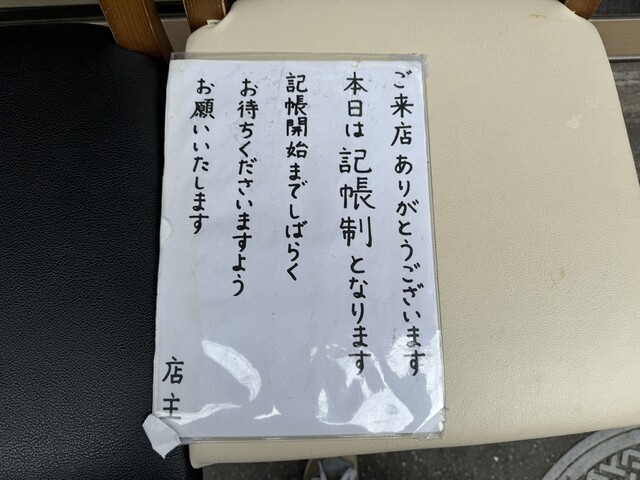 ご来店ありがとうございます
本日は記帳制となります
記帳開始までしばらく
お待ちくださいますよう
お願いいたします
店主